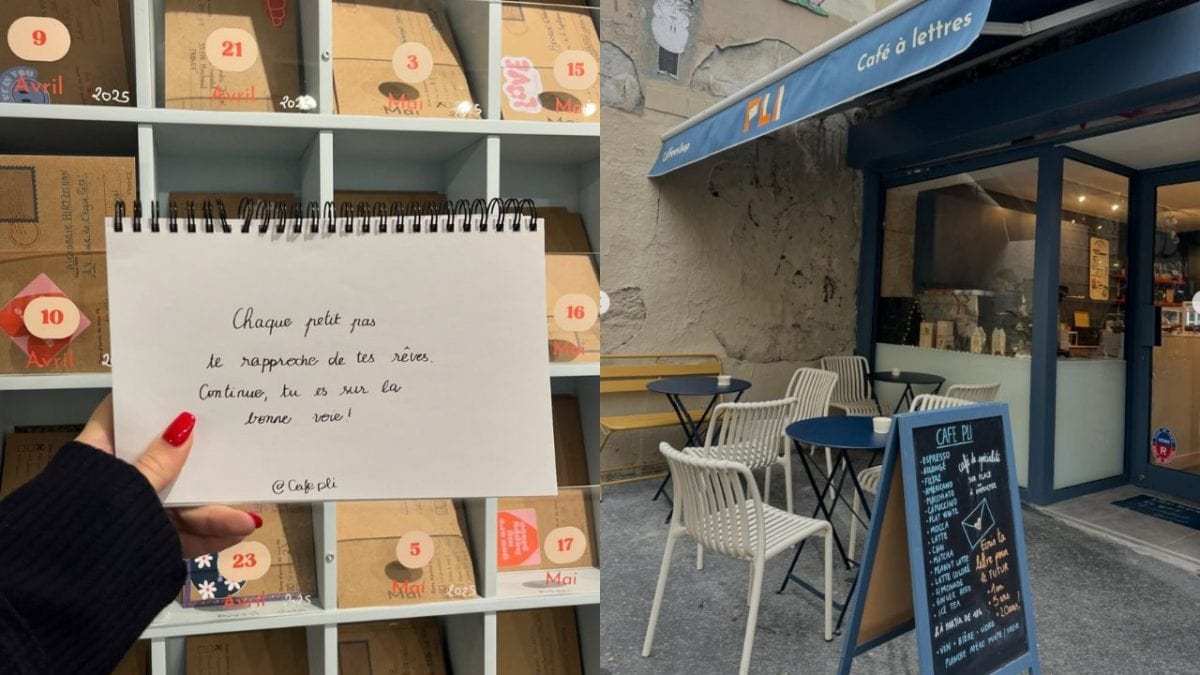 9
Avril
2025
21
Avril
2025
3
Mai
Mai
2025
15
Mai
10
Avril
16
Mai
Chaque petit pas
te rapproche de tes rêves.
Continue, tu es sur la
bonne voie!
@Cafe pli
23
Avril
2025
5
Mai
Mai
2025
17
Mai
Café à lettres
PLI
Coffeeshop
CAFE PLI
-ESPRESSO
-ALLONGÉ
-FILTRE
-AMERICANO
-MACCHIATO
-CAPUCCINO
-FLAT WHITE
-MOCCA
-LATTE
-CHAI
-MATCHA
-PEANUT LATTE
-LATTE COLORÉ
-LIMONADE
-GINGER BEER
-ICE TEA
café de spécialité
SUR PLACE
À EMPORTER
Écris ta
lettre pour
le FUTUR
1 an
5 ans
VIN - BIÈRE - CIDRE
PLANCHE APÉRO